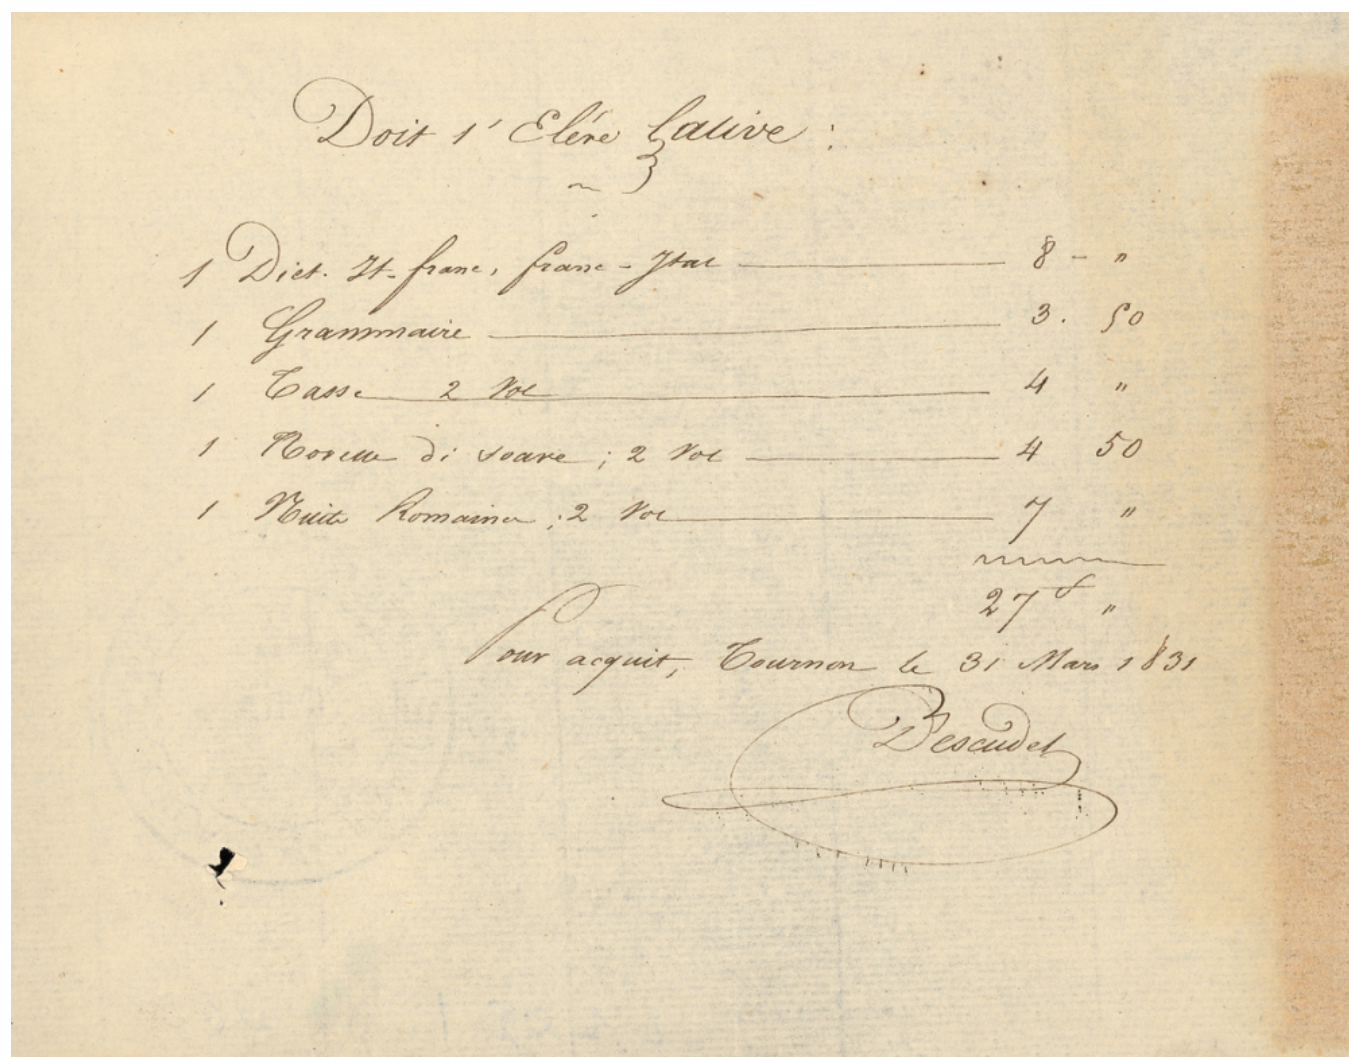 Doit l'Elève Lative :
1 Dict. It-franc, franc-Ital 8 - "
1 Grammaire 3. 50
1 Tasse 2 Vol 4 "
1 Novelle di soave ; 2 Vol 4 50
1 Nuits Romaines ; 2 Vol 7 "
27 f "
Pour acquit, Tournon le 31 Mars 1831
Bescudet